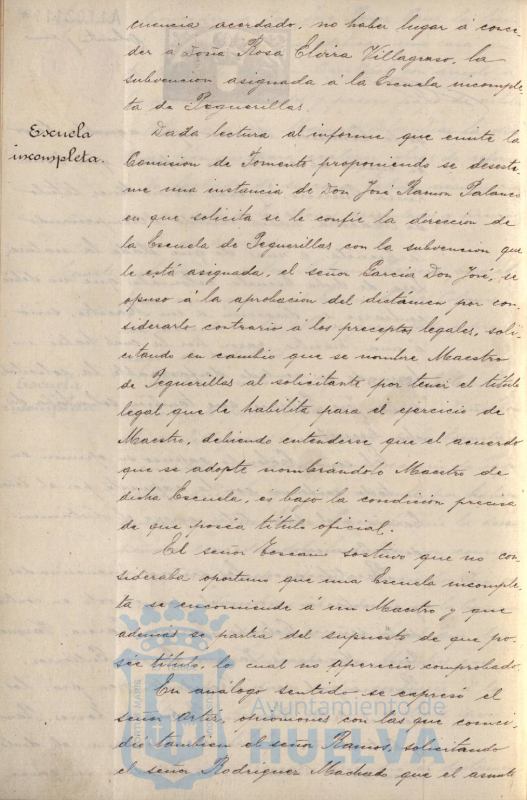 cuencia acordado, no haber lugar á conce-
der á Doña Rosa Elvira Villagraso, la
subvencion asignada á la Escuela incomple-
ta de Peguerillas.
Escuela
incompleta.
Dada lectura al informe que emite la
Comision de Fomento proponiendo se desesti-
me una instancia de Don José Ramon Palanco
en que solicita se le confie la direccion de
la Escuela de Peguerillas con la subvencion que
le está asignada, el señor Garcia Don José, se
opuso á la aprobacion del dictámen por con-
siderarlo contrario á los preceptos legales, soli-
citando en cambio que se nombre Maestro
de Peguerillas al solicitante por tener el título
legal que le habilita para el ejercicio de
Maestro, debiendo entenderse que el acuerdo
que se adopte nombrándolo Maestro de
dicha Escuela, es bajo la condición precisa
de que posea título oficial.
El señor Toscano sostuvo que no con-
sideraba oportuno que una Escuela incomple-
ta se encomiende á un Maestro y que
además se partia del supuesto de que po-
see título, lo cual no aparecia comprobado.
En análogo sentido se expresó el
señor Ortiz, opiniones con las que coinci-
dió tambien el señor Ramos, solicitando
el señor Rodriguez Machado que el asunto
Ayuntamiento de
HUELVA